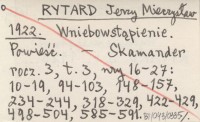 RYTARD Jerzy Mieczysław
1922. Wniebowstąpienie.
Powieść. – Skamander
rocz. 3, t. 3, nry 16-27:
10-19, 94-103, 148-157,
234-244, 318-329, 422-429,
498-504, 585-591.